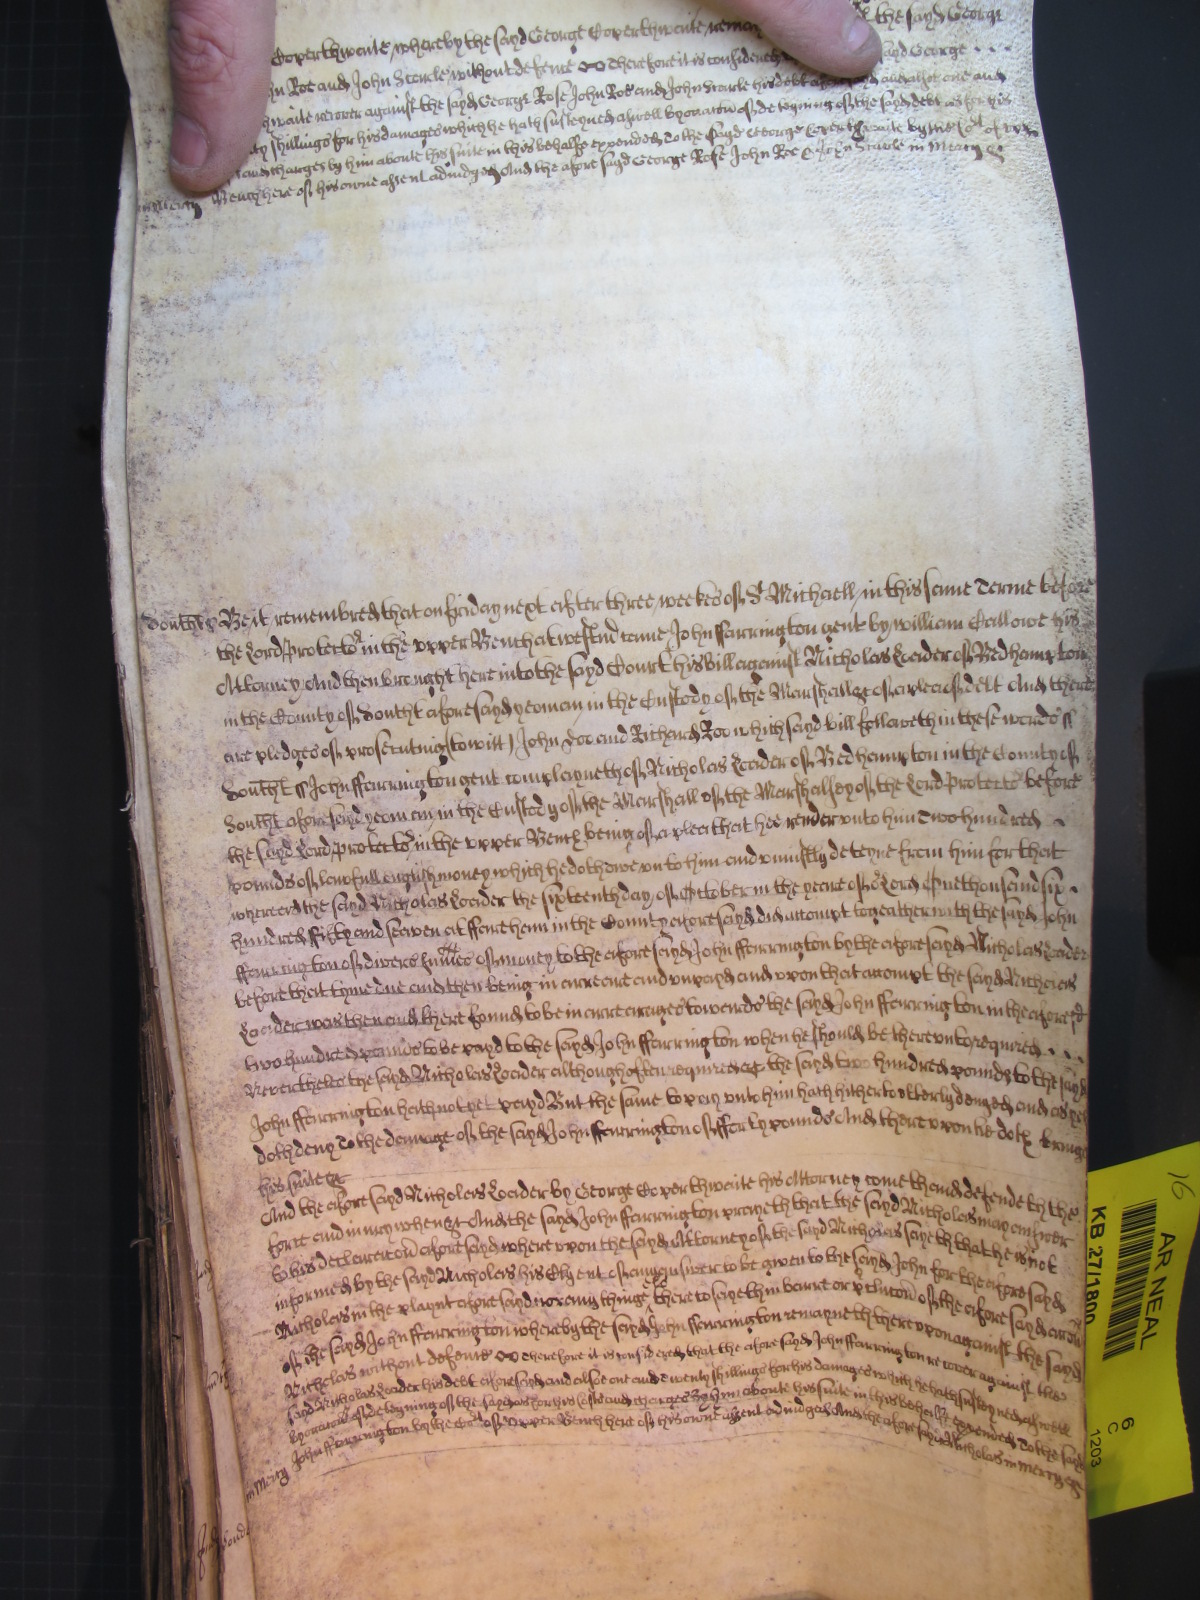 the sayd George
Coverthwaite whereby the sayd George Coverthwaite remay
hn Roe and John Searle without defence Therefore it is considered sayd George
hwaite recover against the sayd George Rose John Roe and John Searle his debt aforesayd and alsoe one and
ty shillings for his damages which he hath susteyned aswell by occasion of deteyning of the sayd debt as for his
and charges by him aboute his suite in this behalfe expended To the sayd George Coverthwaite by the Cort of upp
Bench here of his owne assent adiudged And the aforesayd George Rose John Roe & John Searle in Mercy &c
in Mercy
Southt ss Be it remembred that on friday next after three weekes of St Michaell in this same Terme before
the Lord Protector in the upper Bench at Westmr came John ffarrington gent by William Callowe his
Attorney And then brought here into the sayd Court his bill against Nicholas Loader of Bedhampton
in the County of Southt aforesayd yeoman in the Custody of the Marshall &c of a plea of debt And there
are pledges of prosecuting (to witt) John Doe and Richard Roe which sayd bill followeth in these words ss
Southt ss John ffarrington gent complayneth of Nicholas Loader of Bedhampton in the County of
Southt aforesayd yeoman in the Custody of the Marshall of the Marshalsey of the Lord Protector before
the sayd Lord Protector in the upper Bench being of a plea that hee render unto him Two hundred
pounds of lawfull english money which he doth owe unto him and uniustly deteyne from him for that
whereas the sayd Nicholas Loader the sixteenth day of October in the yeare of or Lord One thousand six
hundred fifty and seaven at ffareham in the County aforesayd did accompt togeather with the sayd John
ffarrington of divers summes of money to the aforesayd John ffarrington by the aforesayd Nicholas Loader
before that tyme due and then being in arreare and unpayd and upon that accompt the sayd Nicholas
Loader was then and there found to be in arrearages towards the sayd John ffarrington in the aforesd
two hundred pounds to be payd to the sayd John ffarrington when he should be thereunto required
Neverthelesse the sayd Nicholas Loader although often required &c the sayd two hundred pounds to the sayd
John ffarrington hath not yet payd But the same to pay unto him hath hitherto utterly denyed and as yet
doth deny To the damage of the sayd John ffarrington of fforty pounds And thereupon he doth bringe
his suite &c
And the aforesayd Nicholas Loader by George Coverthwaite his Attorney cometh and defendeth the
force and iniury when &c And the sayd John ffarrington prayeth that the sayd Nicholas may answer
to his declaracon aforesayd whereupon the sayd Attorney of the sayd Nicholas sayeth that he is not
informed by the sayd Nicholas his Clyent of any answer to be given to the sayd John for the aforesayd
Nicholas in the playnt aforesayd nor any thinge there to sayeth in barre or of the aforesayd accon
of the sayd John ffarrington whereby the sayd John ffarrington remayneth thereupon against the sayd
Nicholas without defence Therefore it is considered that the aforesayd John ffarrington recover against the
sayd Nicholas Loader his debt aforesayd and alsoe one and twenty shillings for his damages which he hath susteyned aswell
by occasion of deteyning of the sayd as for his Costs and charges by him aboute his suite in this behalfe expended To the sayd
John ffarrington by the Cort of upper Bench here of his owne assent adiudged And the aforesayd Nicholas in Mercy &c
in Mercy
16
AR NEAL
KB 27/1800
6
C
1203